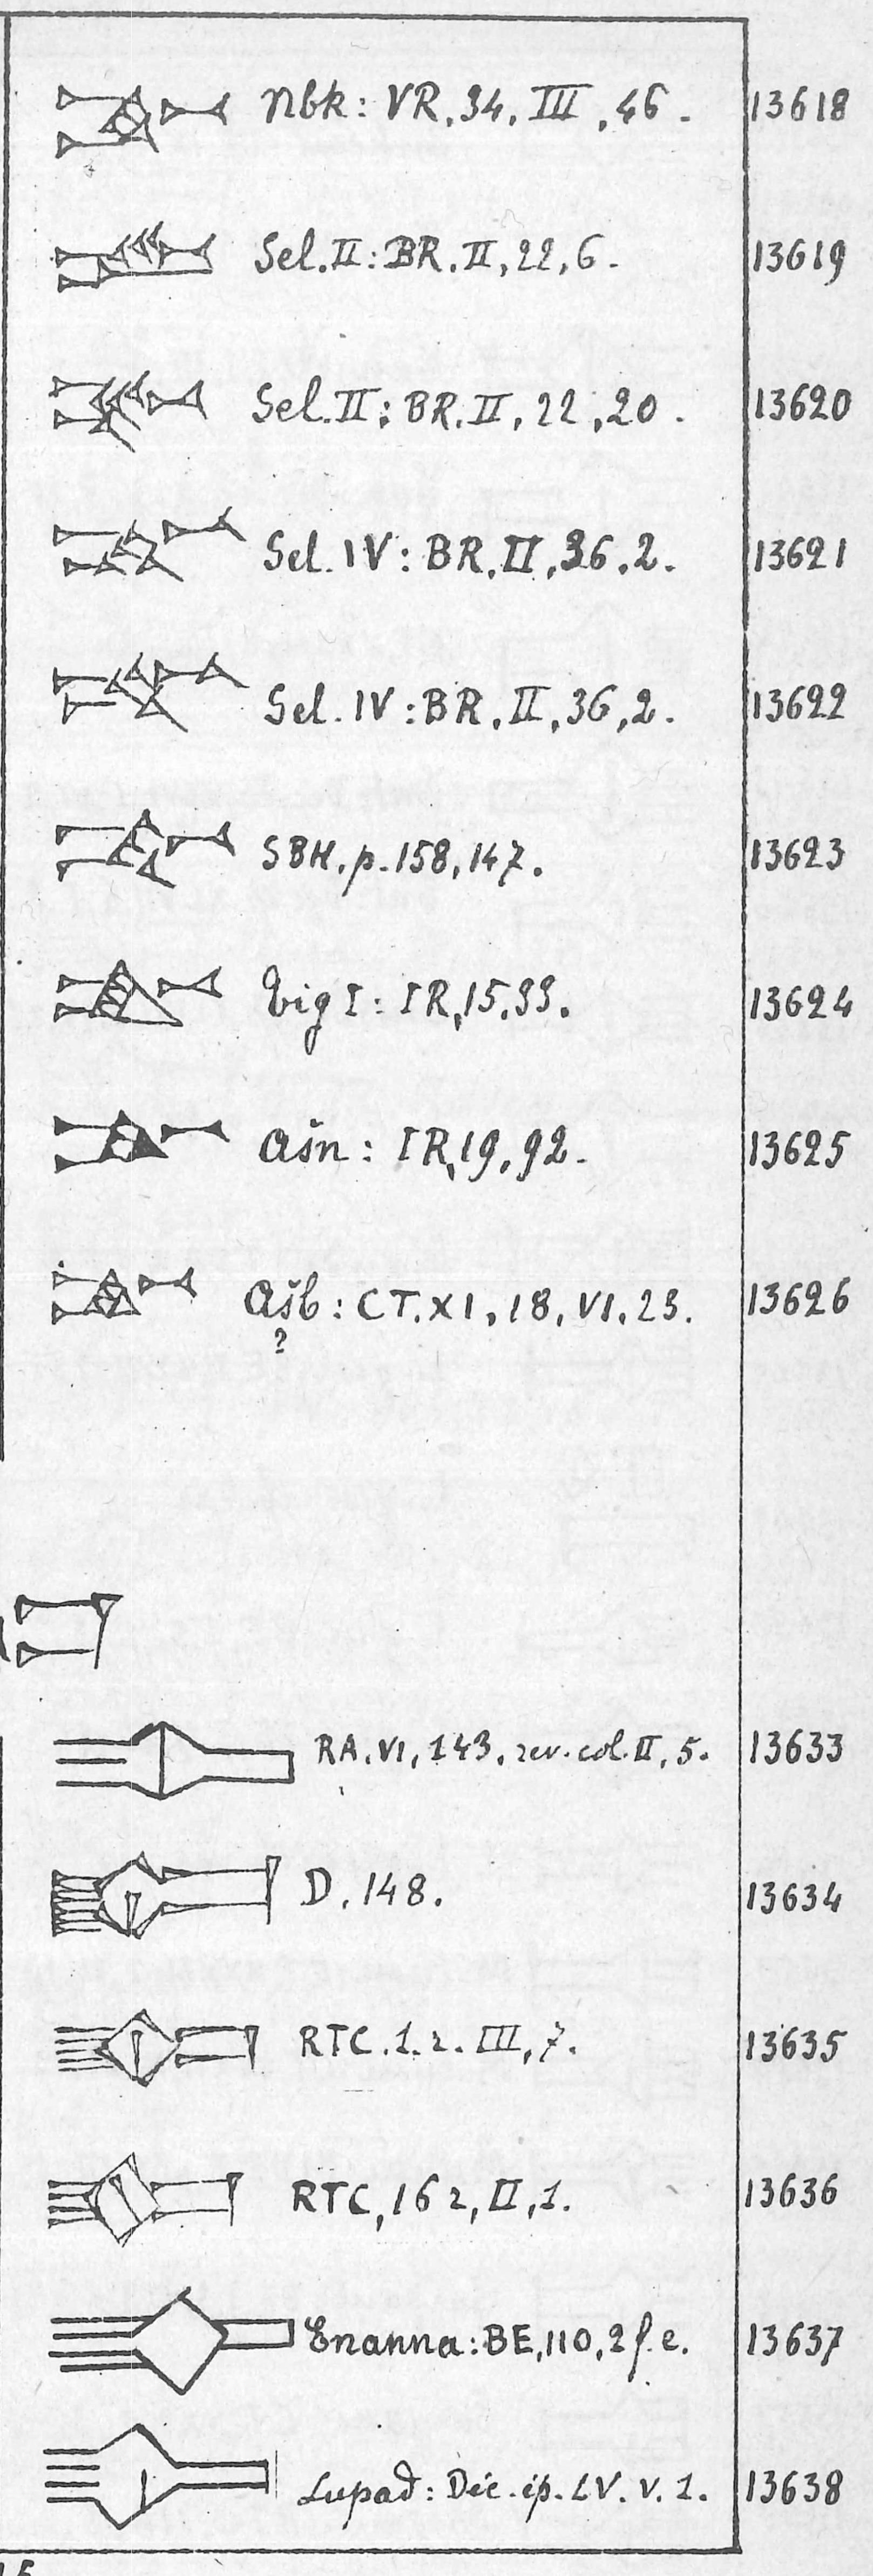 Nbk: VR. 34. III. 46. 13618
Sel. II: BR. II, 22, 6. 13619
Sel. II: BR. II, 22, 20. 13620
Sel. IV: BR. II, 36, 2. 13621
Sel. IV: BR. II, 36, 2. 13622
SBH. p. 158, 147. 13623
Tig I: IR, 15. 33. 13624
Ašn: IR, 19, 92. 13625
Ašb: CT. XI, 18, VI. 23. 13626
?
RA. VI, 143. rev. col. II, 5. 13633
D. 148. 13634
RTC. 1. r. III, 7. 13635
RTC, 16 r, II, 1. 13636
Enanna: BE, 110, 2 f. e. 13637
Lupad: Déc. ép. LV. v. 1. 13638